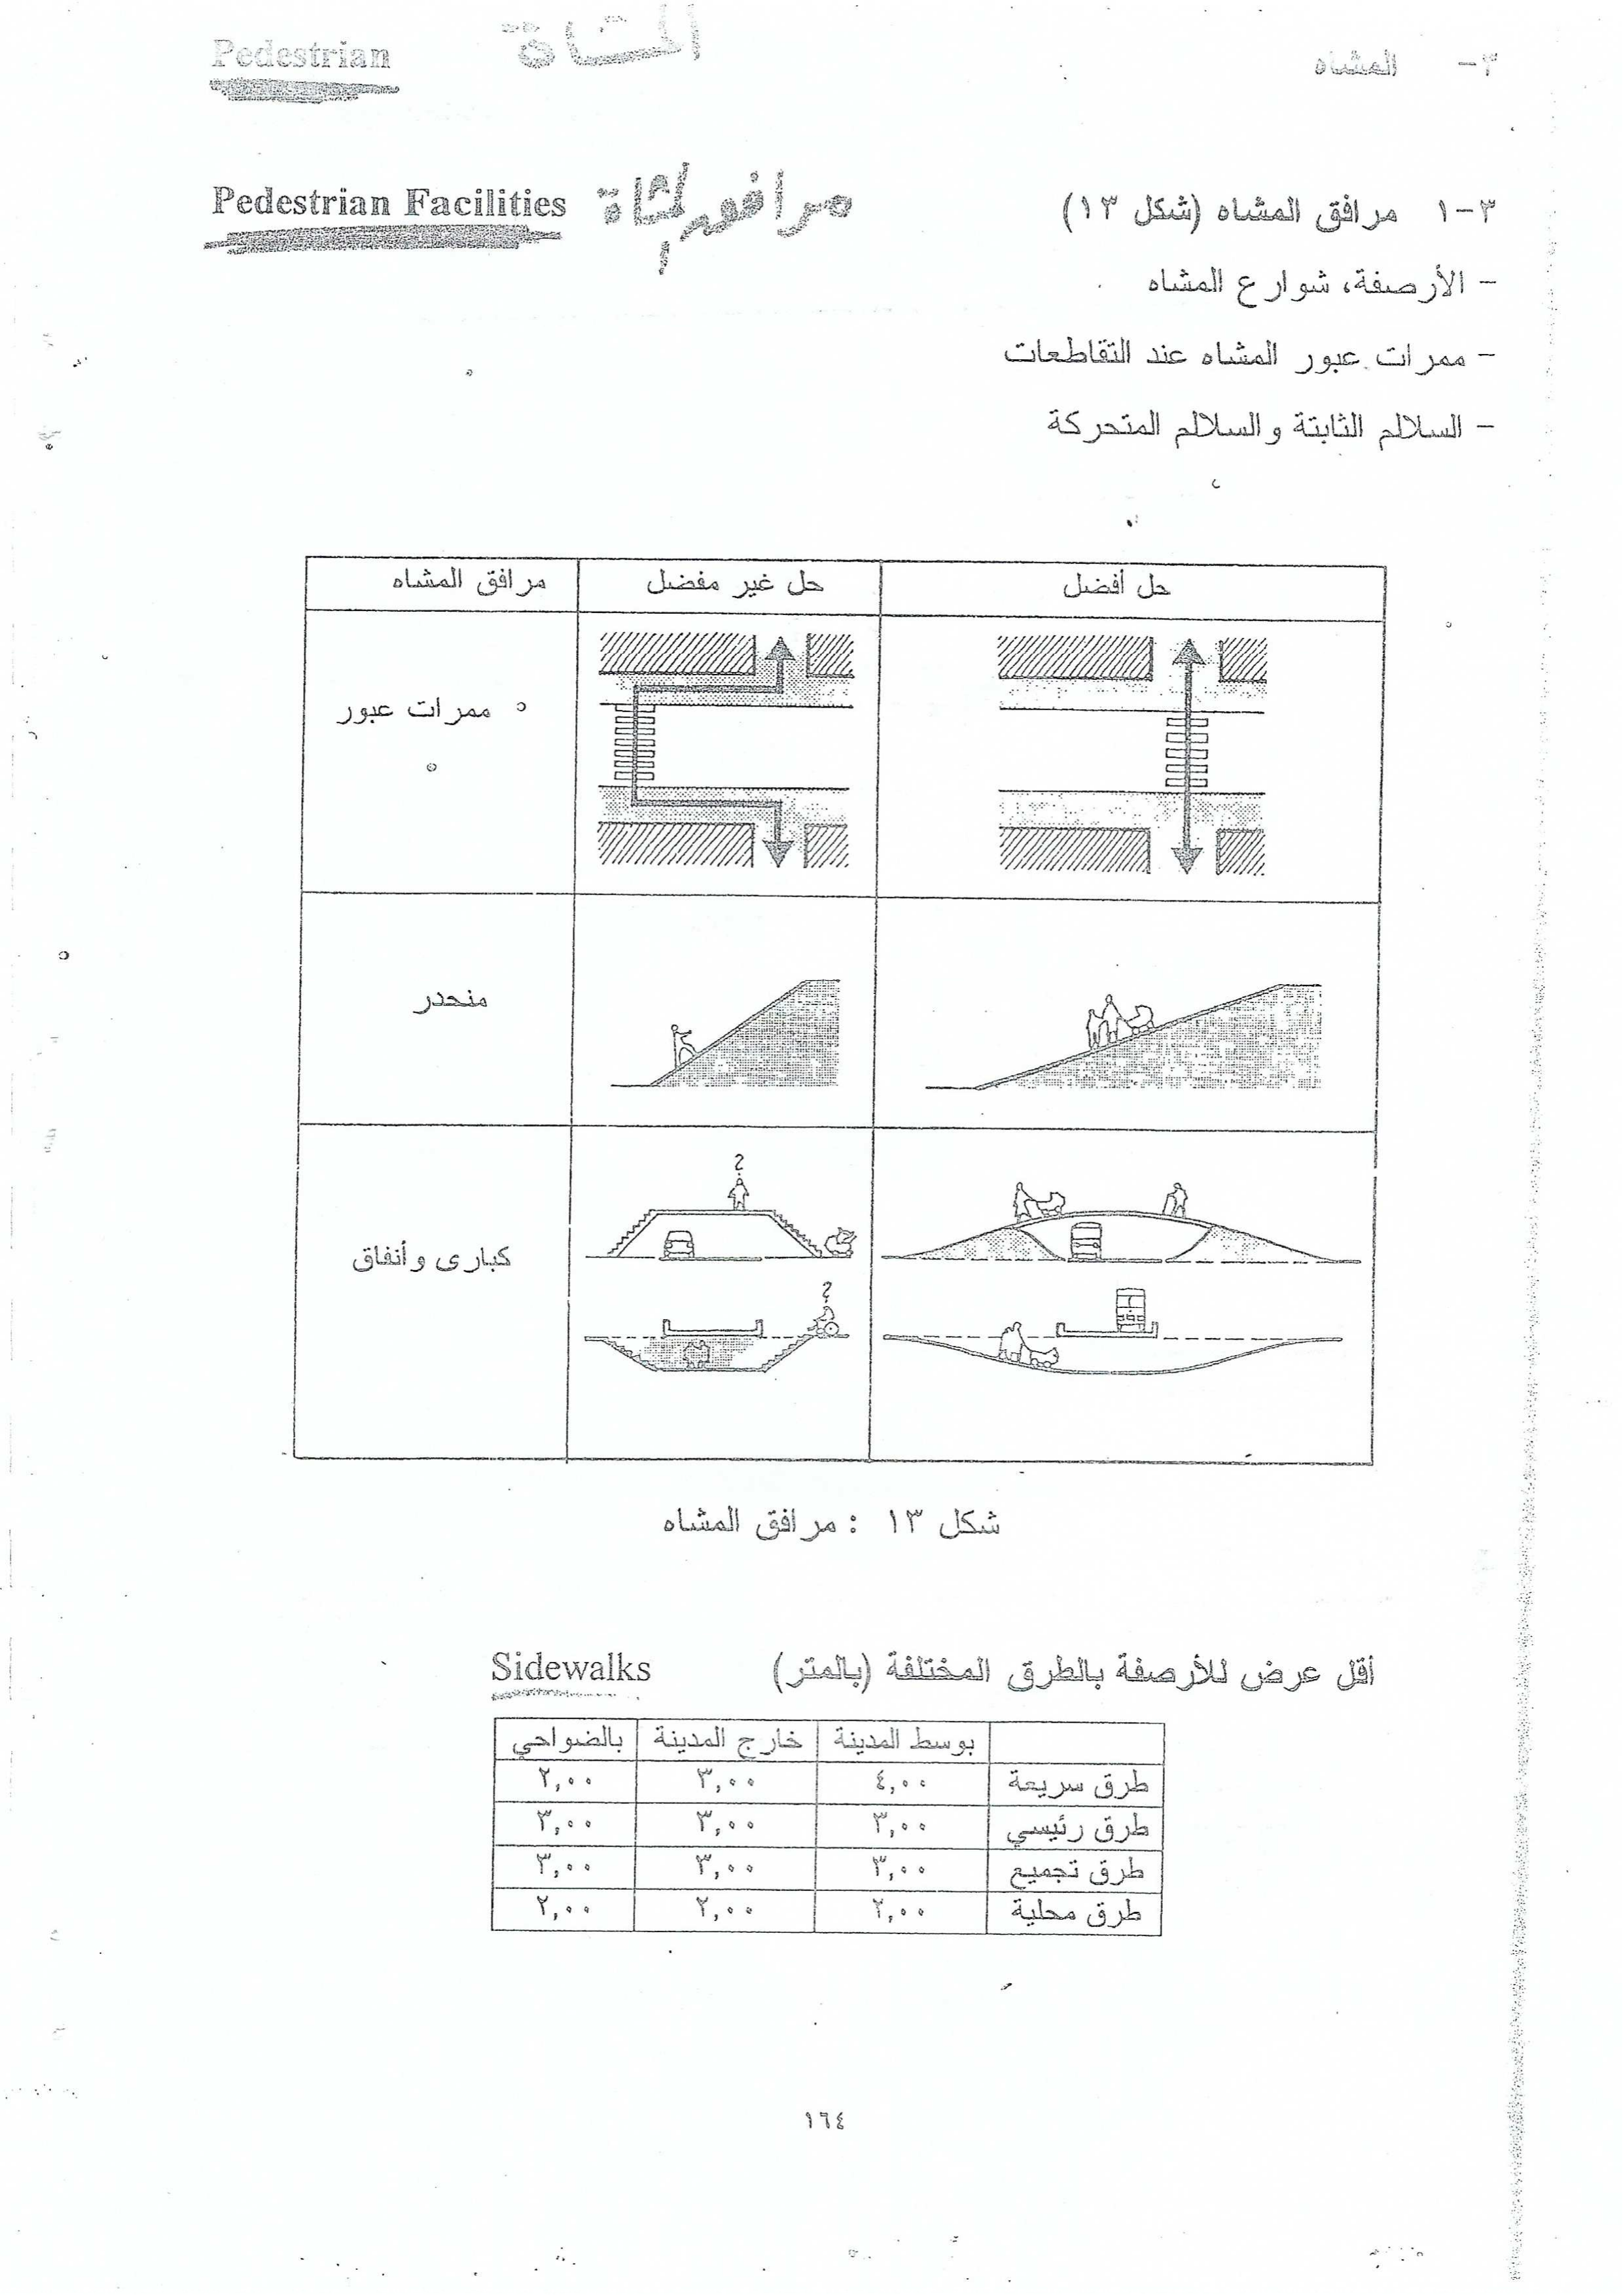 ٣- المشاه المشاة Pedestrian
٣-١ مرافق المشاه (شكل ١٣) مرافق المشاة Pedestrian Facilities
- الأرصفة، شوارع المشاه
- ممرات عبور المشاه عند التقاطعات
- السلالم الثابتة والسلالم المتحركة
حل أفضل حل غير مفضل مرافق المشاه
ممرات عبور
منحدر
?
كبارى وأنفاق
?
شكل ١٣ : مرافق المشاه
أقل عرض للأرصفة بالطرق المختلفة (بالمتر) Sidewalks
بوسط المدينة خارج المدينة بالضواحي
طرق سريعة ٤,٠٠ ٣,٠٠ ٢,٠٠
طرق رئيسي ٣,٠٠ ٣,٠٠ ٣,٠٠
طرق تجميع ٣,٠٠ ٣,٠٠ ٣,٠٠
طرق محلية ٢,٠٠ ٢,٠٠ ٢,٠٠
١٦٤